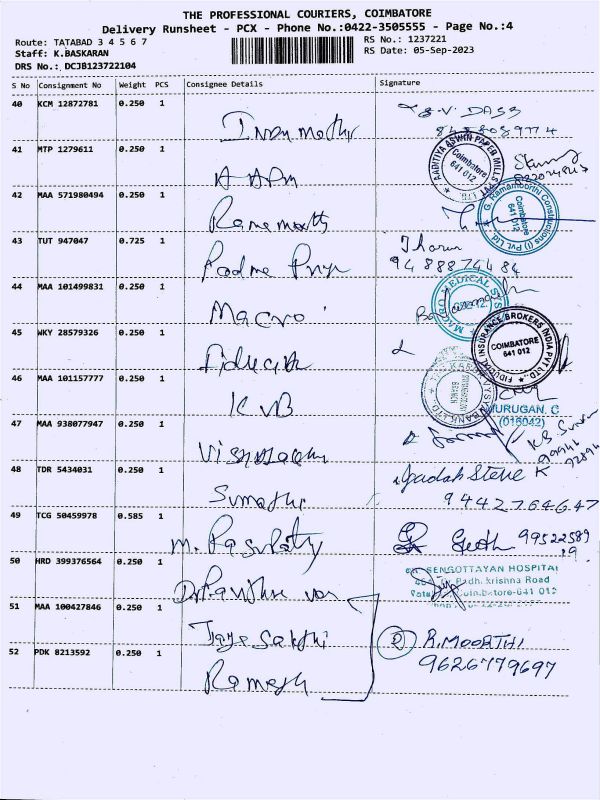 THE PROFESSIONAL COURIERS, COIMBATORE
Delivery Runsheet - PCX - Phone No.:0422-3505555 - Page No.:4
Route: TATABAD 3 4 5 6 7
RS No.: 1237221
Staff: K.BASKARAN
RS Date: 05-Sep-2023
DRS No.: DCJB123722104
S No Consignment No Weight PCS Consignee Details Signature
40 KCM 12872781 0.250 1
S.V. DASS
41 MTP 1279611 0.250 1
AADITIYA ASWIN PAPER MILLS PVT LTD
Coimbatore
641 012
42 MAA 571980494 0.250 1
G. Ramamoorthi Constructions (I) Pvt. Ltd.
Coimbatore
641 012
43 TUT 947047 0.725 1 Padma Priya Tharun
9488874484
44 MAA 101499831 0.250 1 Macro
MACRO MEDICAL
45 WKY 28579326 0.250 1 Fiducial
FIDUCIAL INSURANCE BROKERS INDIA PVT LTD.,
COIMBATORE
641 012
46 MAA 101157777 0.250 1 KVB
MURUGAN. C
(016042)
47 MAA 938077947 0.250 1
48 TDR 5434031 0.250 1 Sumathi
9442764647
49 TCG 50459978 0.585 1 M. Pasupathy Geetha 9952258919
50 HRD 399376564 0.250 1
SENGOTTAYAN HOSPITAL
51 MAA 100427846 0.250 1 Jaya Sakthi
R.MOORTHI
9626779697
52 PDK 8213592 0.250 1 Ramesh